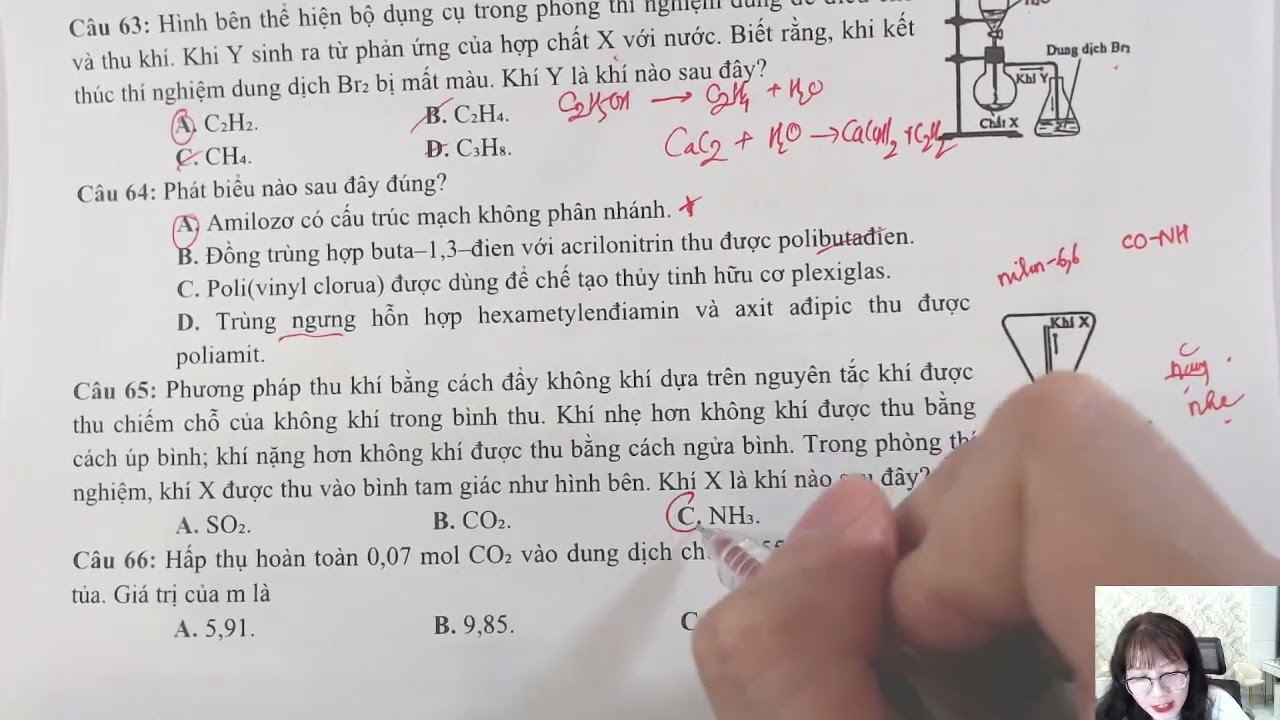 Câu 63: Hình bên thể hiện bộ dụng cụ trong phòng thí nghiệm dùng để
và thu khí. Khi Y sinh ra từ phản ứng của hợp chất X với nước. Biết rằng, khi kết
thúc thí nghiệm dung dịch Br₂ bị mất màu. Khí Y là khí nào sau đây?
Dung dịch Br₂
Khí Y
Chất X
A. C₂H₂.
B. C₂H₄.
C₂H₅OH → C₂H₄ + H₂O
C. CH₄.
D. C₃H₈.
CaC₂ + H₂O → Ca(OH)₂ + C₂H₂
Câu 64: Phát biểu nào sau đây đúng?
A. Amilozơ có cấu trúc mạch không phân nhánh.
B. Đồng trùng hợp buta–1,3–đien với acrilonitrin thu được polibutađien.
C. Poli(vinyl clorua) được dùng để chế tạo thủy tinh hữu cơ plexiglas.
D. Trùng ngưng hỗn hợp hexametylenđiamin và axit ađipic thu được
poliamit.
nilon-6,6
CO-NH
Khí X
C
nhẹ
Câu 65: Phương pháp thu khí bằng cách đẩy không khí dựa trên nguyên tắc khí được
thu chiếm chỗ của không khí trong bình thu. Khí nhẹ hơn không khí được thu bằng
cách úp bình; khí nặng hơn không khí được thu bằng cách ngửa bình. Trong phòng
nghiệm, khí X được thu vào bình tam giác như hình bên. Khí X là khí nào đây?
A. SO₂.
B. CO₂.
C. NH₃.
Câu 66: Hấp thụ hoàn toàn 0,07 mol CO₂ vào dung dịch
tủa. Giá trị của m là
A. 5,91.
B. 9,85.
C